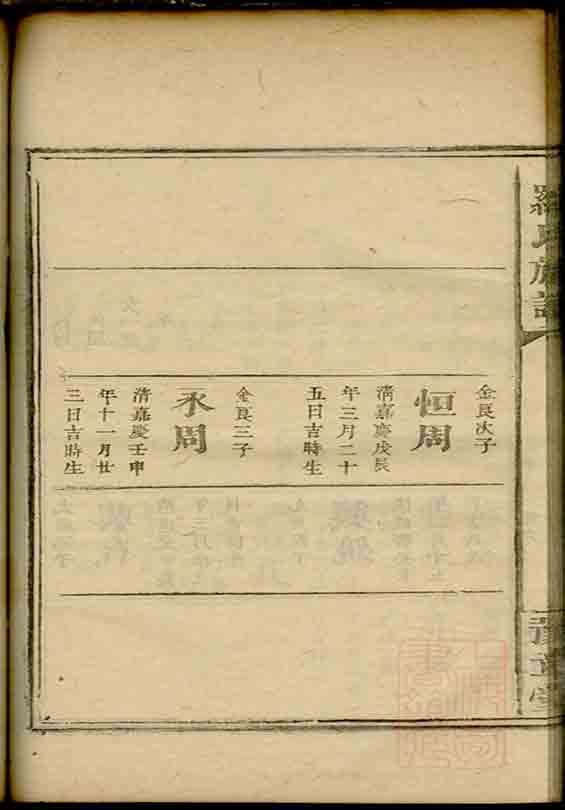 羅氏族譜
豫章堂
金良次子
恒周
清嘉慶戊辰
年三月二十
五日吉時生
金良三子
永周
清嘉慶壬申
年十一月廿
三日吉時生